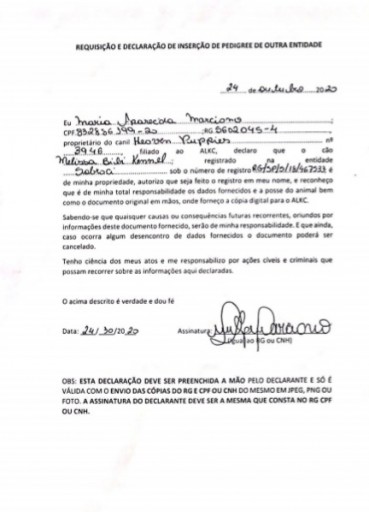 REQUISIÇÃO E DECLARAÇÃO DE INSERÇÃO DE PEDIGREE DE OUTRA ENTIDADE
24 de outubro 2020
Eu Maria Aparecida Marciano ;
CPF 832836399-20 ;RG 5602045-4 ,
proprietário do canil Heaven Puppies nº
8946 , filiado ao ALKC, declaro que o cão
Melissa Bibi Kennel ; registrado na entidade
Sobraci sob o número de registro é
de minha propriedade, autorizo que seja feito o registro em meu nome, e reconheço
que é de minha total responsabilidade os dados fornecidos e a posse do animal bem
como o documento original em mãos, onde forneço a cópia digital para o ALKC.
Sabendo-se que quaisquer causas ou consequências futuras recorrentes, oriundos por
informações deste documento fornecido, serão de minha responsabilidade. E que ainda,
caso ocorra algum desencontro de dados fornecidos o documento poderá ser
cancelado.
Tenho ciência dos meus atos e me responsabilizo por ações cíveis e criminais que
possam recorrer sobre as informações aqui declaradas.
O acima descrito é verdade e dou fé
Data: 24/10/2020 Assinatura:
(Igual ao RG ou CNH)
OBS: ESTA DECLARAÇÃO DEVE SER PREENCHIDA A MÃO PELO DECLARANTE E SÓ É
VÁLIDA COM O ENVIO DAS CÓPIAS DO RG E CPF OU CNH DO MESMO EM JPEG, PNG OU
FOTO. A ASSINATURA DO DECLARANTE DEVE SER A MESMA QUE CONSTA NO RG CPF
OU CNH.